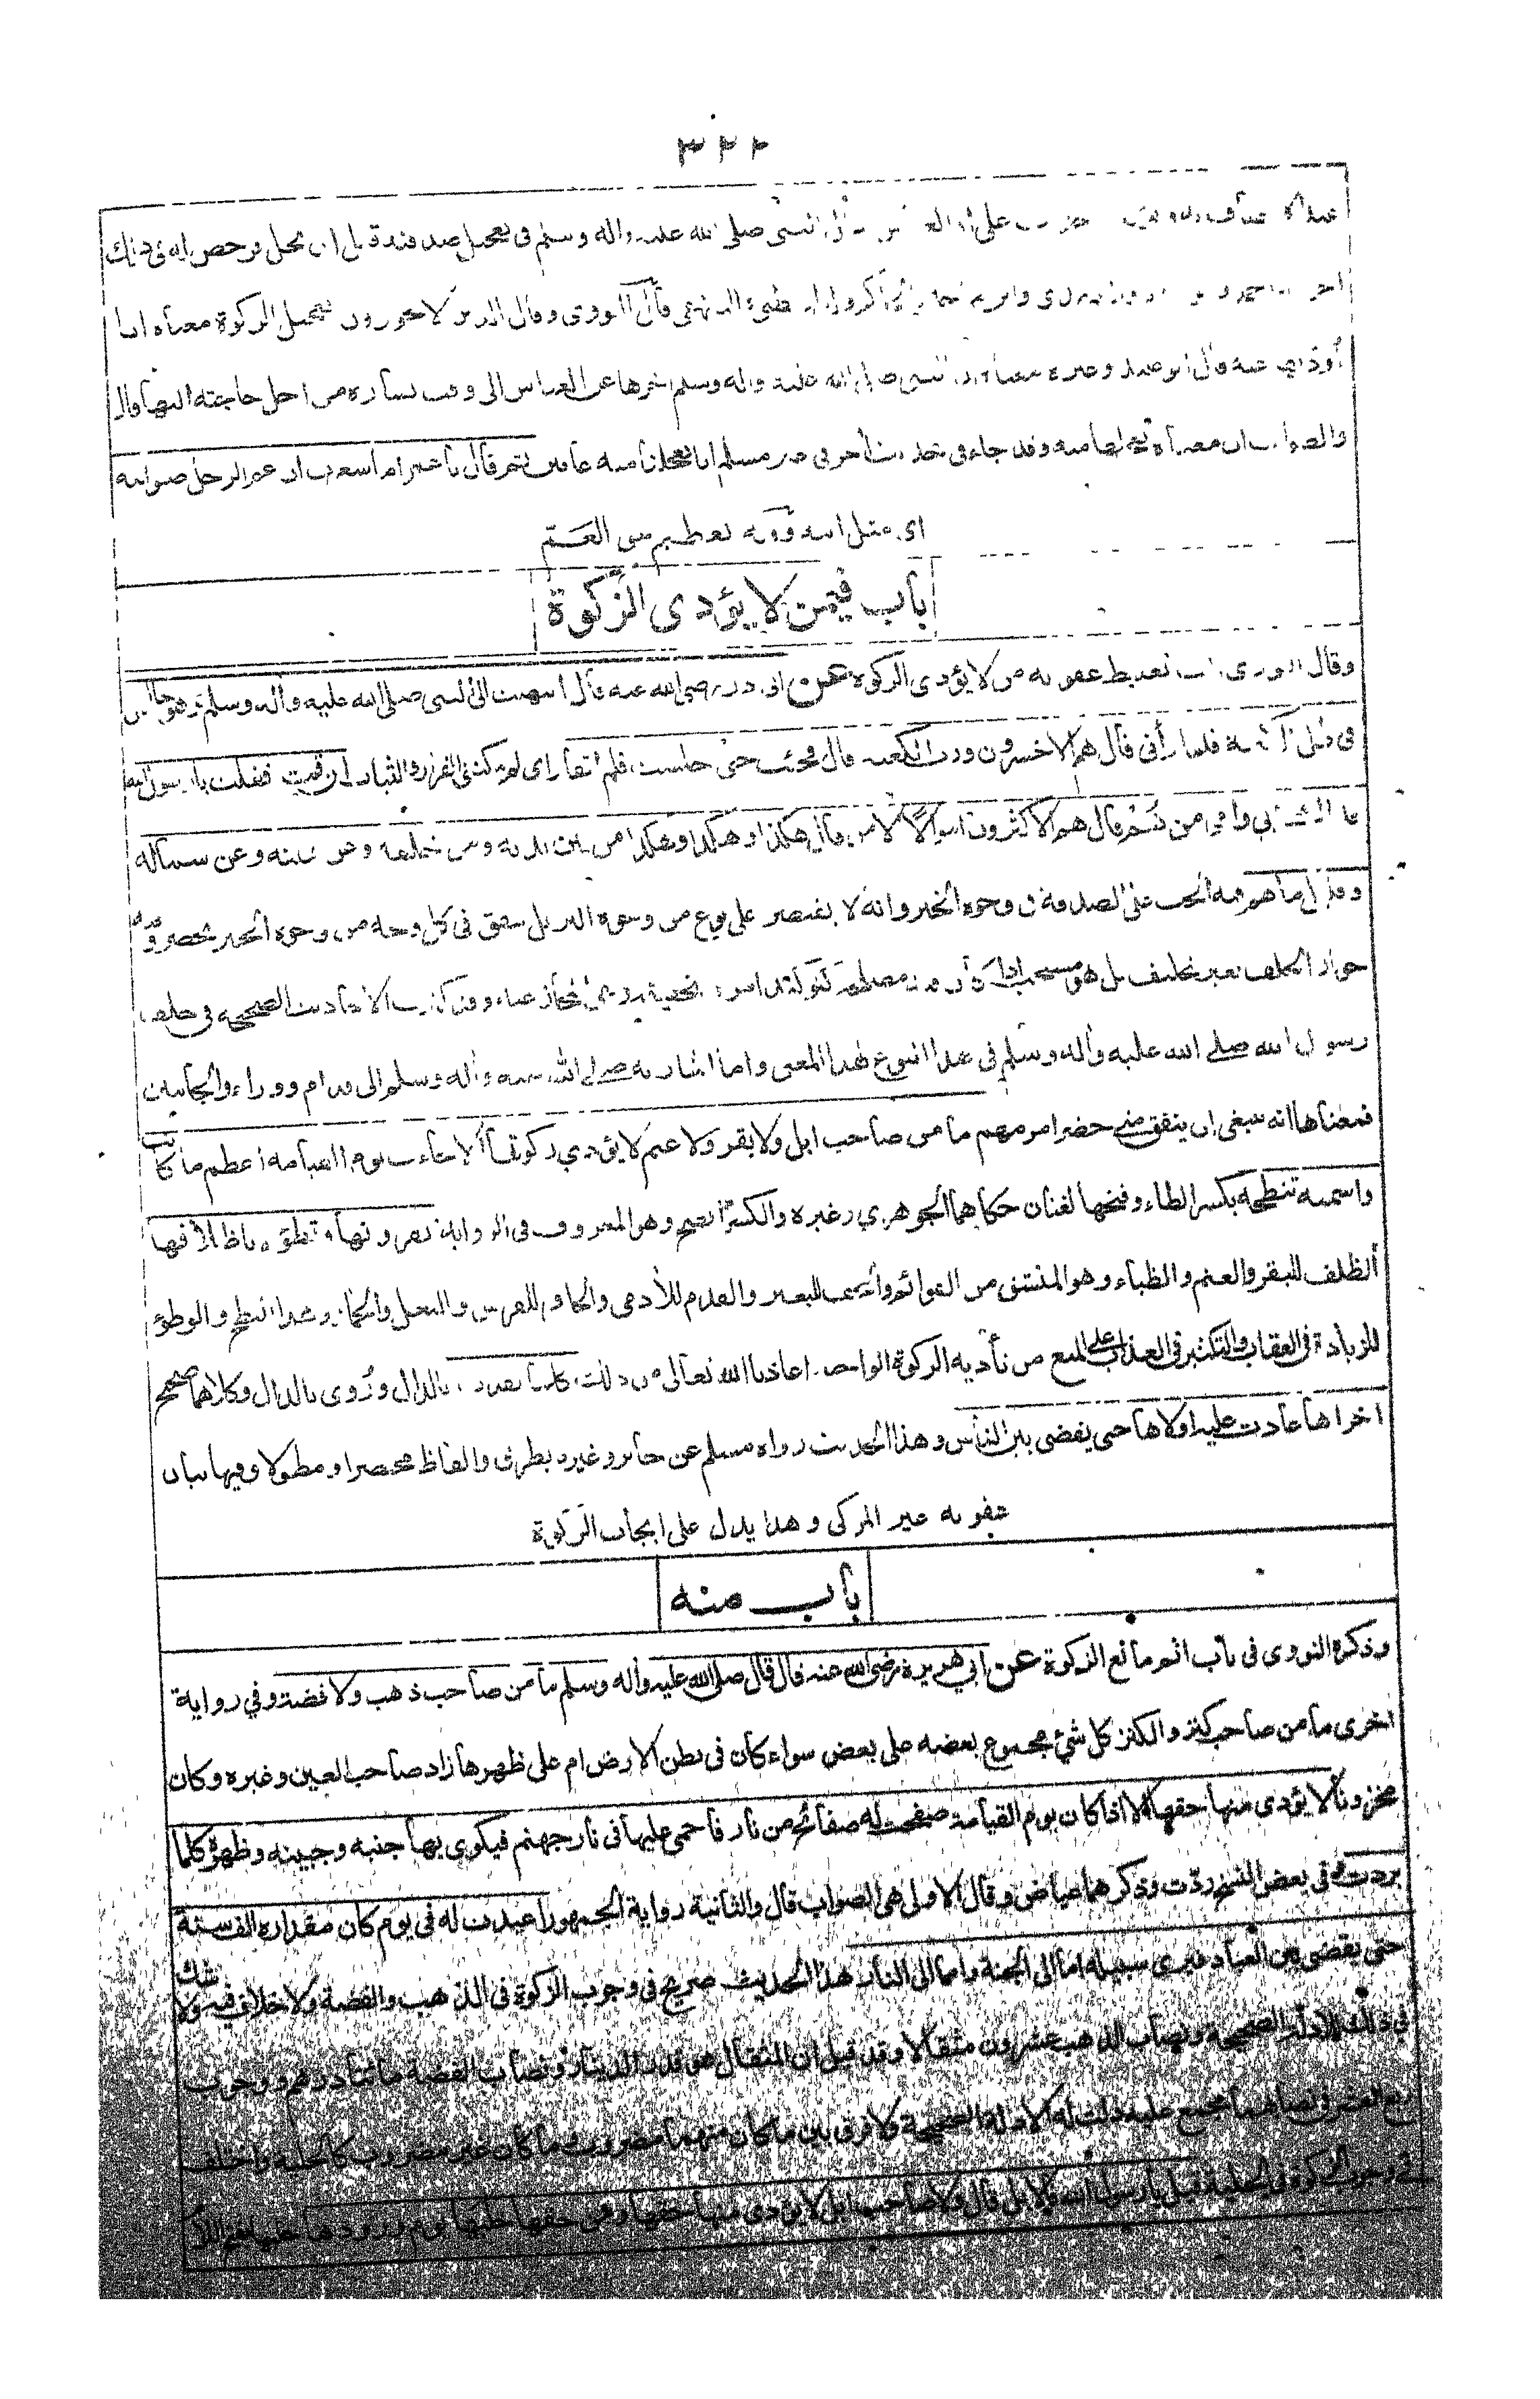 ٣٢٢
صلى الله عليه واله وسلم فى تعجيل صدقته قبل ان تحل فرخص له فى ذلك
قال النووى وقال الذين لا يجوزون تعجيل الزكوة معناه انا
صلى الله عليه واله وسلم اخرها عن العباس الى وقت يساره من اجل حاجته اليها قال
والصواب ان معناه وقد جاء فى حديث أخر فى غير مسلم انا تعجلنا منه عامين ثم قال يا عمر اما شعرت ان عم الرجل صنو ابيه
اى مثل ابيه وفيه تعظيم حق العم
باب فيمن لا يؤدى الزكوة
وقال النووى باب تغليظ عقوبة من لا يؤدى الزكوة عن ابى ذر رضى الله عنه قال انتهيت الى النبى صلى الله عليه وأله وسلم وهو جالس
فى ظل الكعبة فلما رأنى قال هم الاخسرون ورب الكعبة قال فجئت حتى جلست فلم اتقار اى لم يمكننى القرار والثبات ان قمت فقلت يا رسول الله
فداك ابى وامى من هم قال هم الاكثرون اموالا الا من قال هكذا وهكذا وهكذا من بين يديه ومن خلفه وعن يمينه وعن شماله
وقليل ما هم فيه الحث على الصدقة فى وجوه الخير وانه لا يقتصر على نوع من وجوه البر بل ينفق فى كل وجه من وجوه الخير يحضر وفيه
جواز الحلف بغير تحليف بل هو مستحب اذا كان فيه مصلحة كتوكيد امر وتحقيقه ونفى المجاز عنه وقد كثرت الاحاديث الصحيحة فى حلف
رسول الله صلى الله عليه وأله وسلم فى هذا النوع لهذا المعنى واما اشارته صلى الله عليه وأله وسلم الى قدام ووراء والجانبين
فمعناها انه ينبغى ان ينفق متى حضر امر مهم ما من صاحب ابل ولا بقر ولا غنم لا يؤدي زكوتها الا جاءت يوم القيامة اعظم ما كانت
واسمنه تنطحه بكسر الطاء وفتحها لغتان حكاهما الجوهري وغيره والكسر افصح وهو المعروف فى الرواية بقرونها وتطؤه باظلافها
الظلف للبقر والغنم والظباء وهو المنشق من القوائم والخف للبعير والقدم للأدمى والحافر للفرس والبغل والحمار وهذا النطح والوطؤ
للزيادة فى العقاب والتكثير فى العذاب على المنع من تأدية الزكوة الواجبة اعاذنا الله تعالى من ذلك كلما نفدت بالدال وروى بالذال وكلاهما صحيح
اخراها عادت عليه اولاها حتى يقضى بين الناس وهذا الحديث رواه مسلم عن جابر وغيره بطرق والفاظ مختصرا ومطولا وفيها بيان
عقوبة غير المزكى وهذا يدل على ايجاب الزكوة
باب منه
وذكره النووى فى باب اثم مانع الزكوة عن ابي هريرة رضى الله عنه قال قال صلى الله عليه وأله وسلم ما من صاحب ذهب ولا فضة وفي رواية
اخرى ما من صاحب كنز والكنز كل شئ مجموع بعضه على بعض سواء كان فى بطن الارض ام على ظهرها زاد صاحب العين وغيره وكان
مخزونا لا يؤدى منها حقها الا اذا كان يوم القيامة صفحت له صفائح من نار فاحمى عليها فى نار جهنم فيكوى بها جنبه وجبينه وظهره كلما
بردت وفى بعض النسخ ردت وذكرهما عياض وقال الاولى هى الصواب قال والثانية رواية الجمهور اعيدت له فى يوم كان مقداره الف سنة
حتى يقضى بين العباد فيرى سبيله اما الى الجنة واما الى النار هذا الحديث صريح فى وجوب الزكوة فى الذهب والفضة ولا خلاف فيه ولا شك
فى ذلك للادلة الصحيحة ونصاب الذهب عشرون مثقالا وقد قيل ان المثقال هو قدر الدينار ونصاب الفضة مائتا درهم ووجوب
ربع العشر فى نصابهما مجمع عليه ذلت له الادلة الصحيحة ولا فرق بين ما كان منهما مضروبا وما كان غير مضروب كالحلية واختلف
فى وجوب الزكوة فى الحلية قيل يا رسول الله فالابل قال ولا صاحب ابل لا يؤدى منها حقها ومن حقها حلبها يوم وردها حلبها بفتح اللام